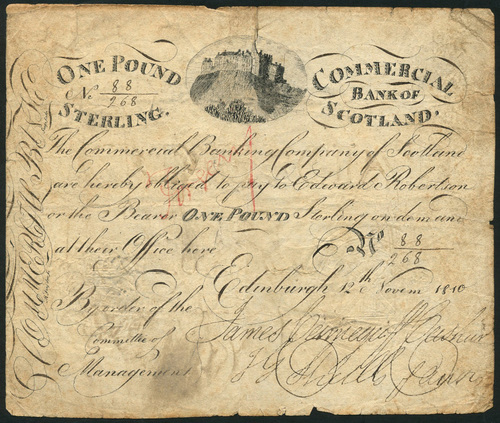 ONE POUND
No. 88/268
STERLING.
COMMERCIAL
BANK OF
SCOTLAND.
COMMERCIAL BANK
The Commercial Banking Company of Scotland
are hereby obliged to pay to Edward Robertson
or the Bearer ONE POUND Sterling on demand
at their Office here
No 88/268
Edinburgh 12th Novem 1810
By order of the
Committee of
Management
James